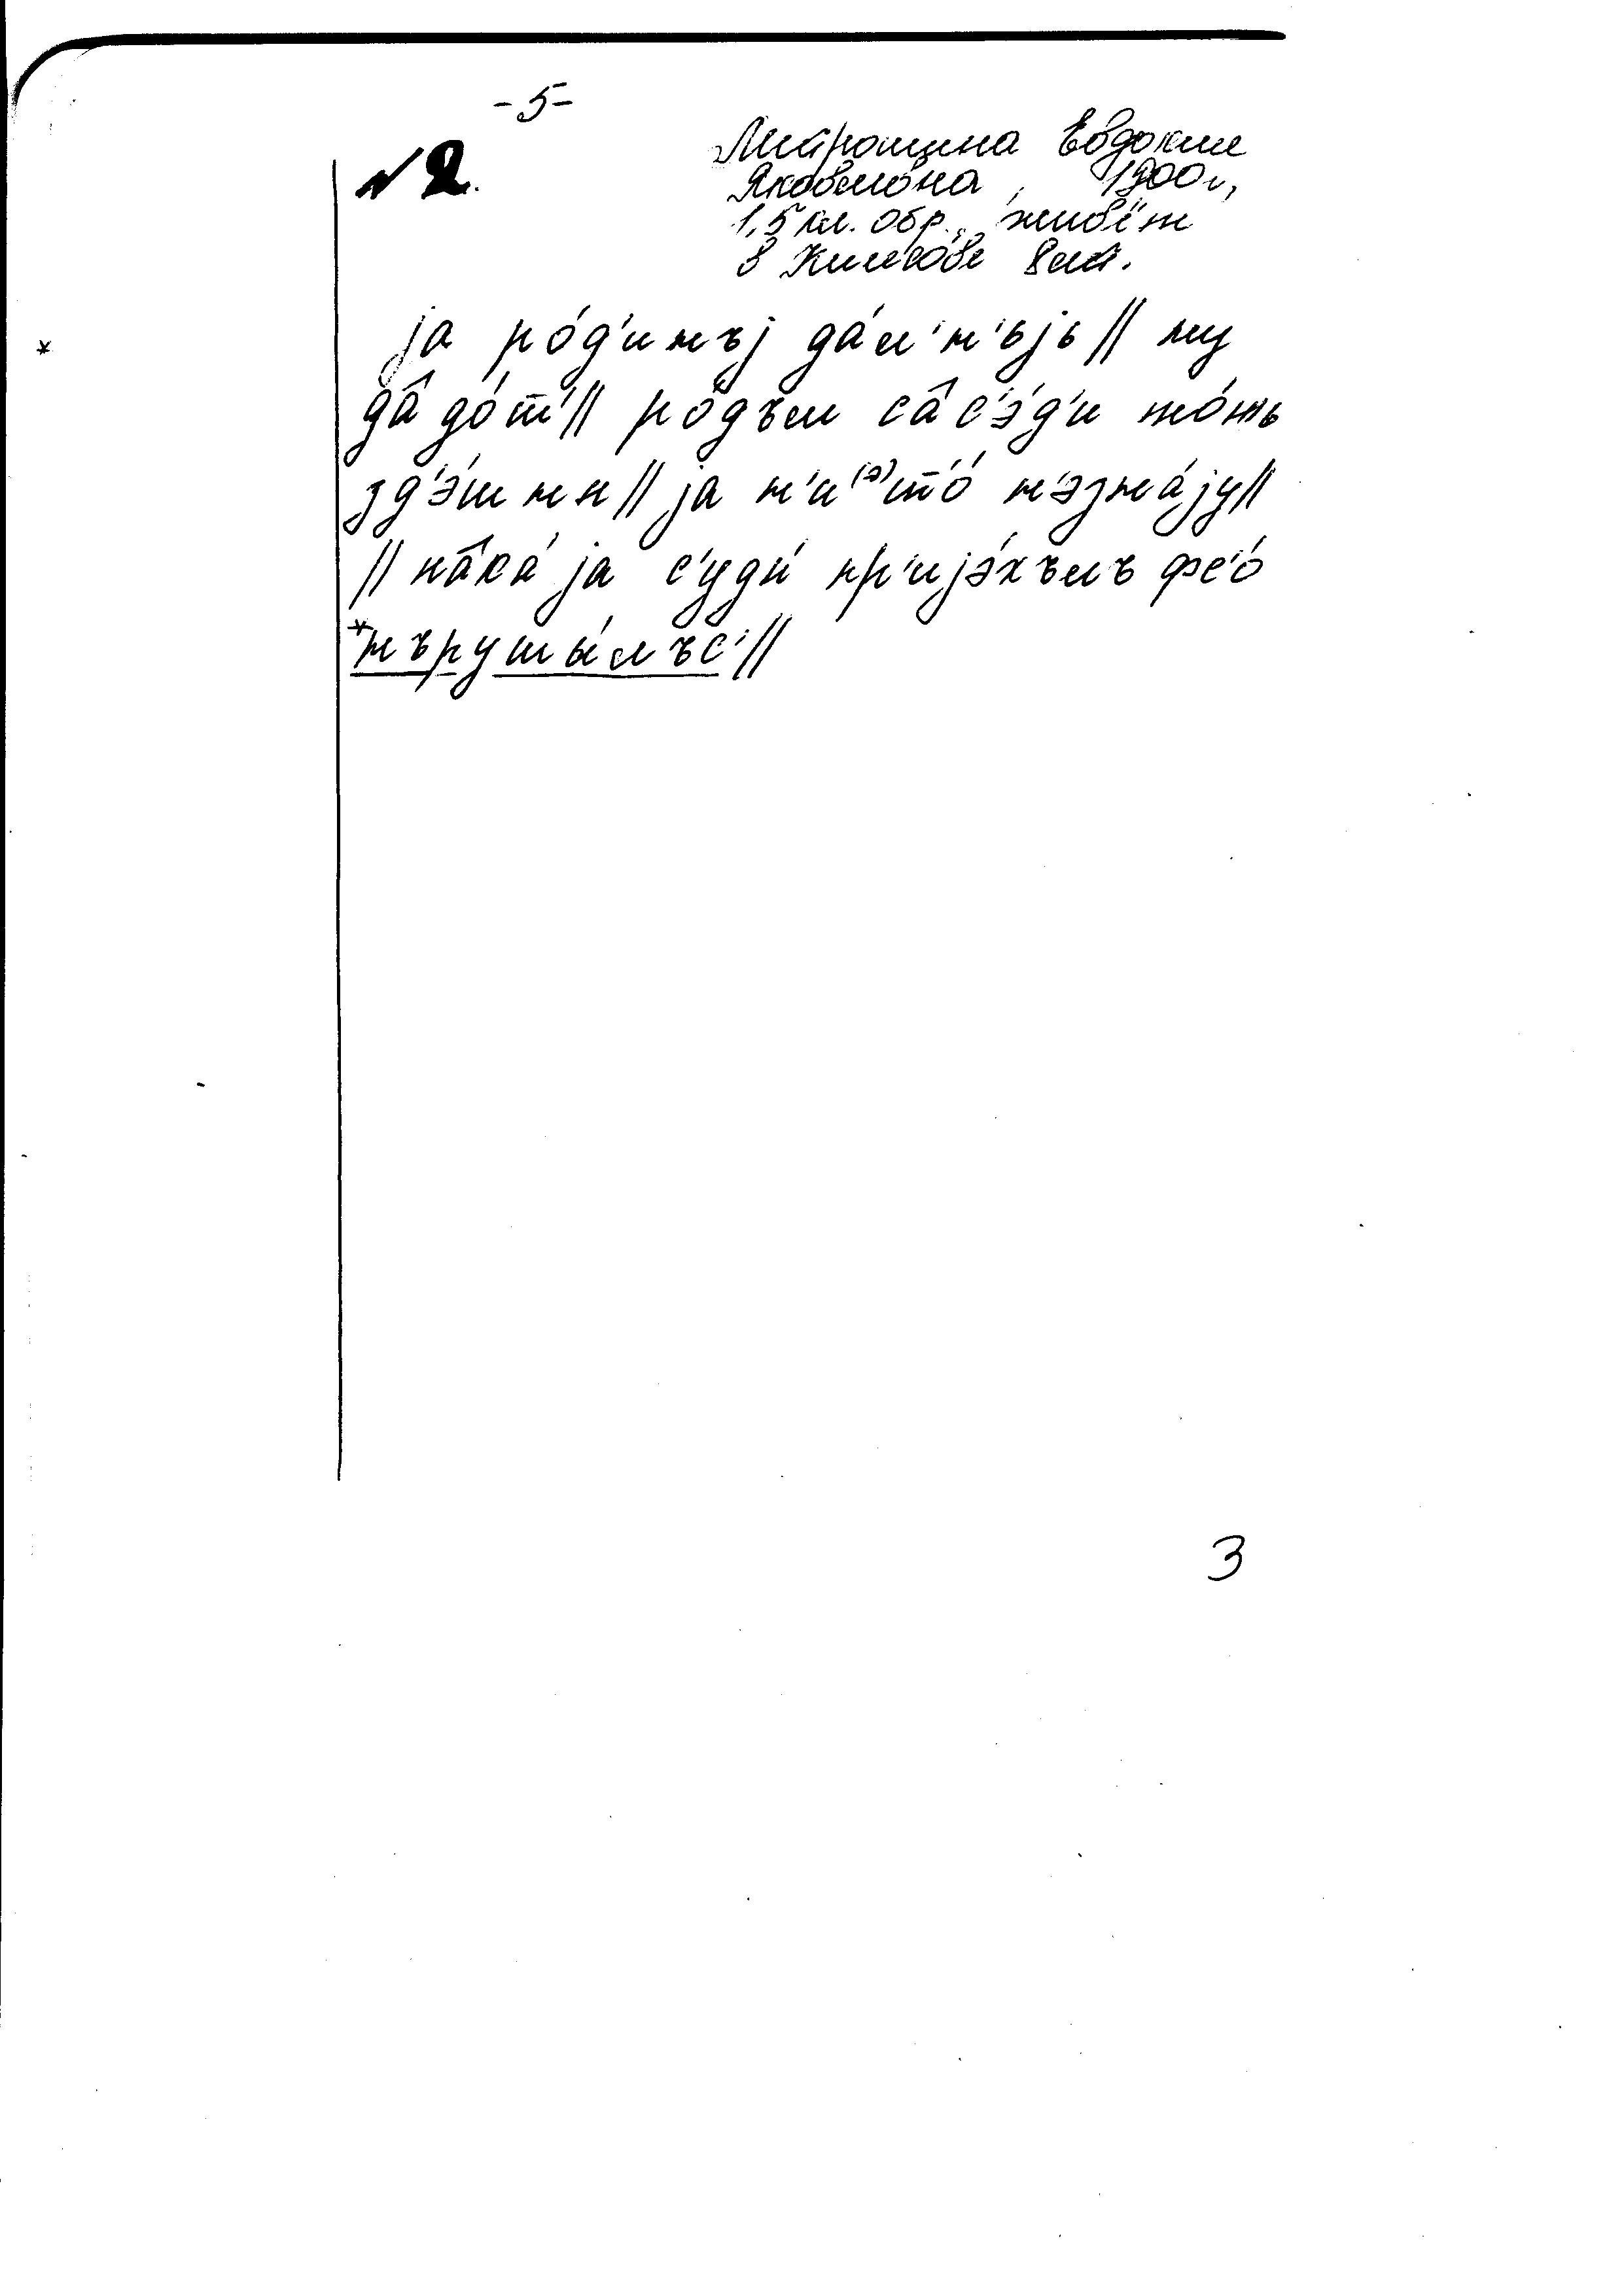 -5-
№ 2.
Митрошина Евдокия
Яковлевна, 1900 г,
1,5 кл. обр., живёт
в 8 лет.
jа ро́д'инъj да́л'н'ьjь // ну
да̂ до́т' // р'а́дъм са̂с'э́д'и то́жъ
зд'э́шни // jа н'и(э)што́ н'э зна́jу //
// па̂ка́ jа с'уды́ пр'иjэ́хълъ фс'о́
*нърушы́лъс' //
*
3